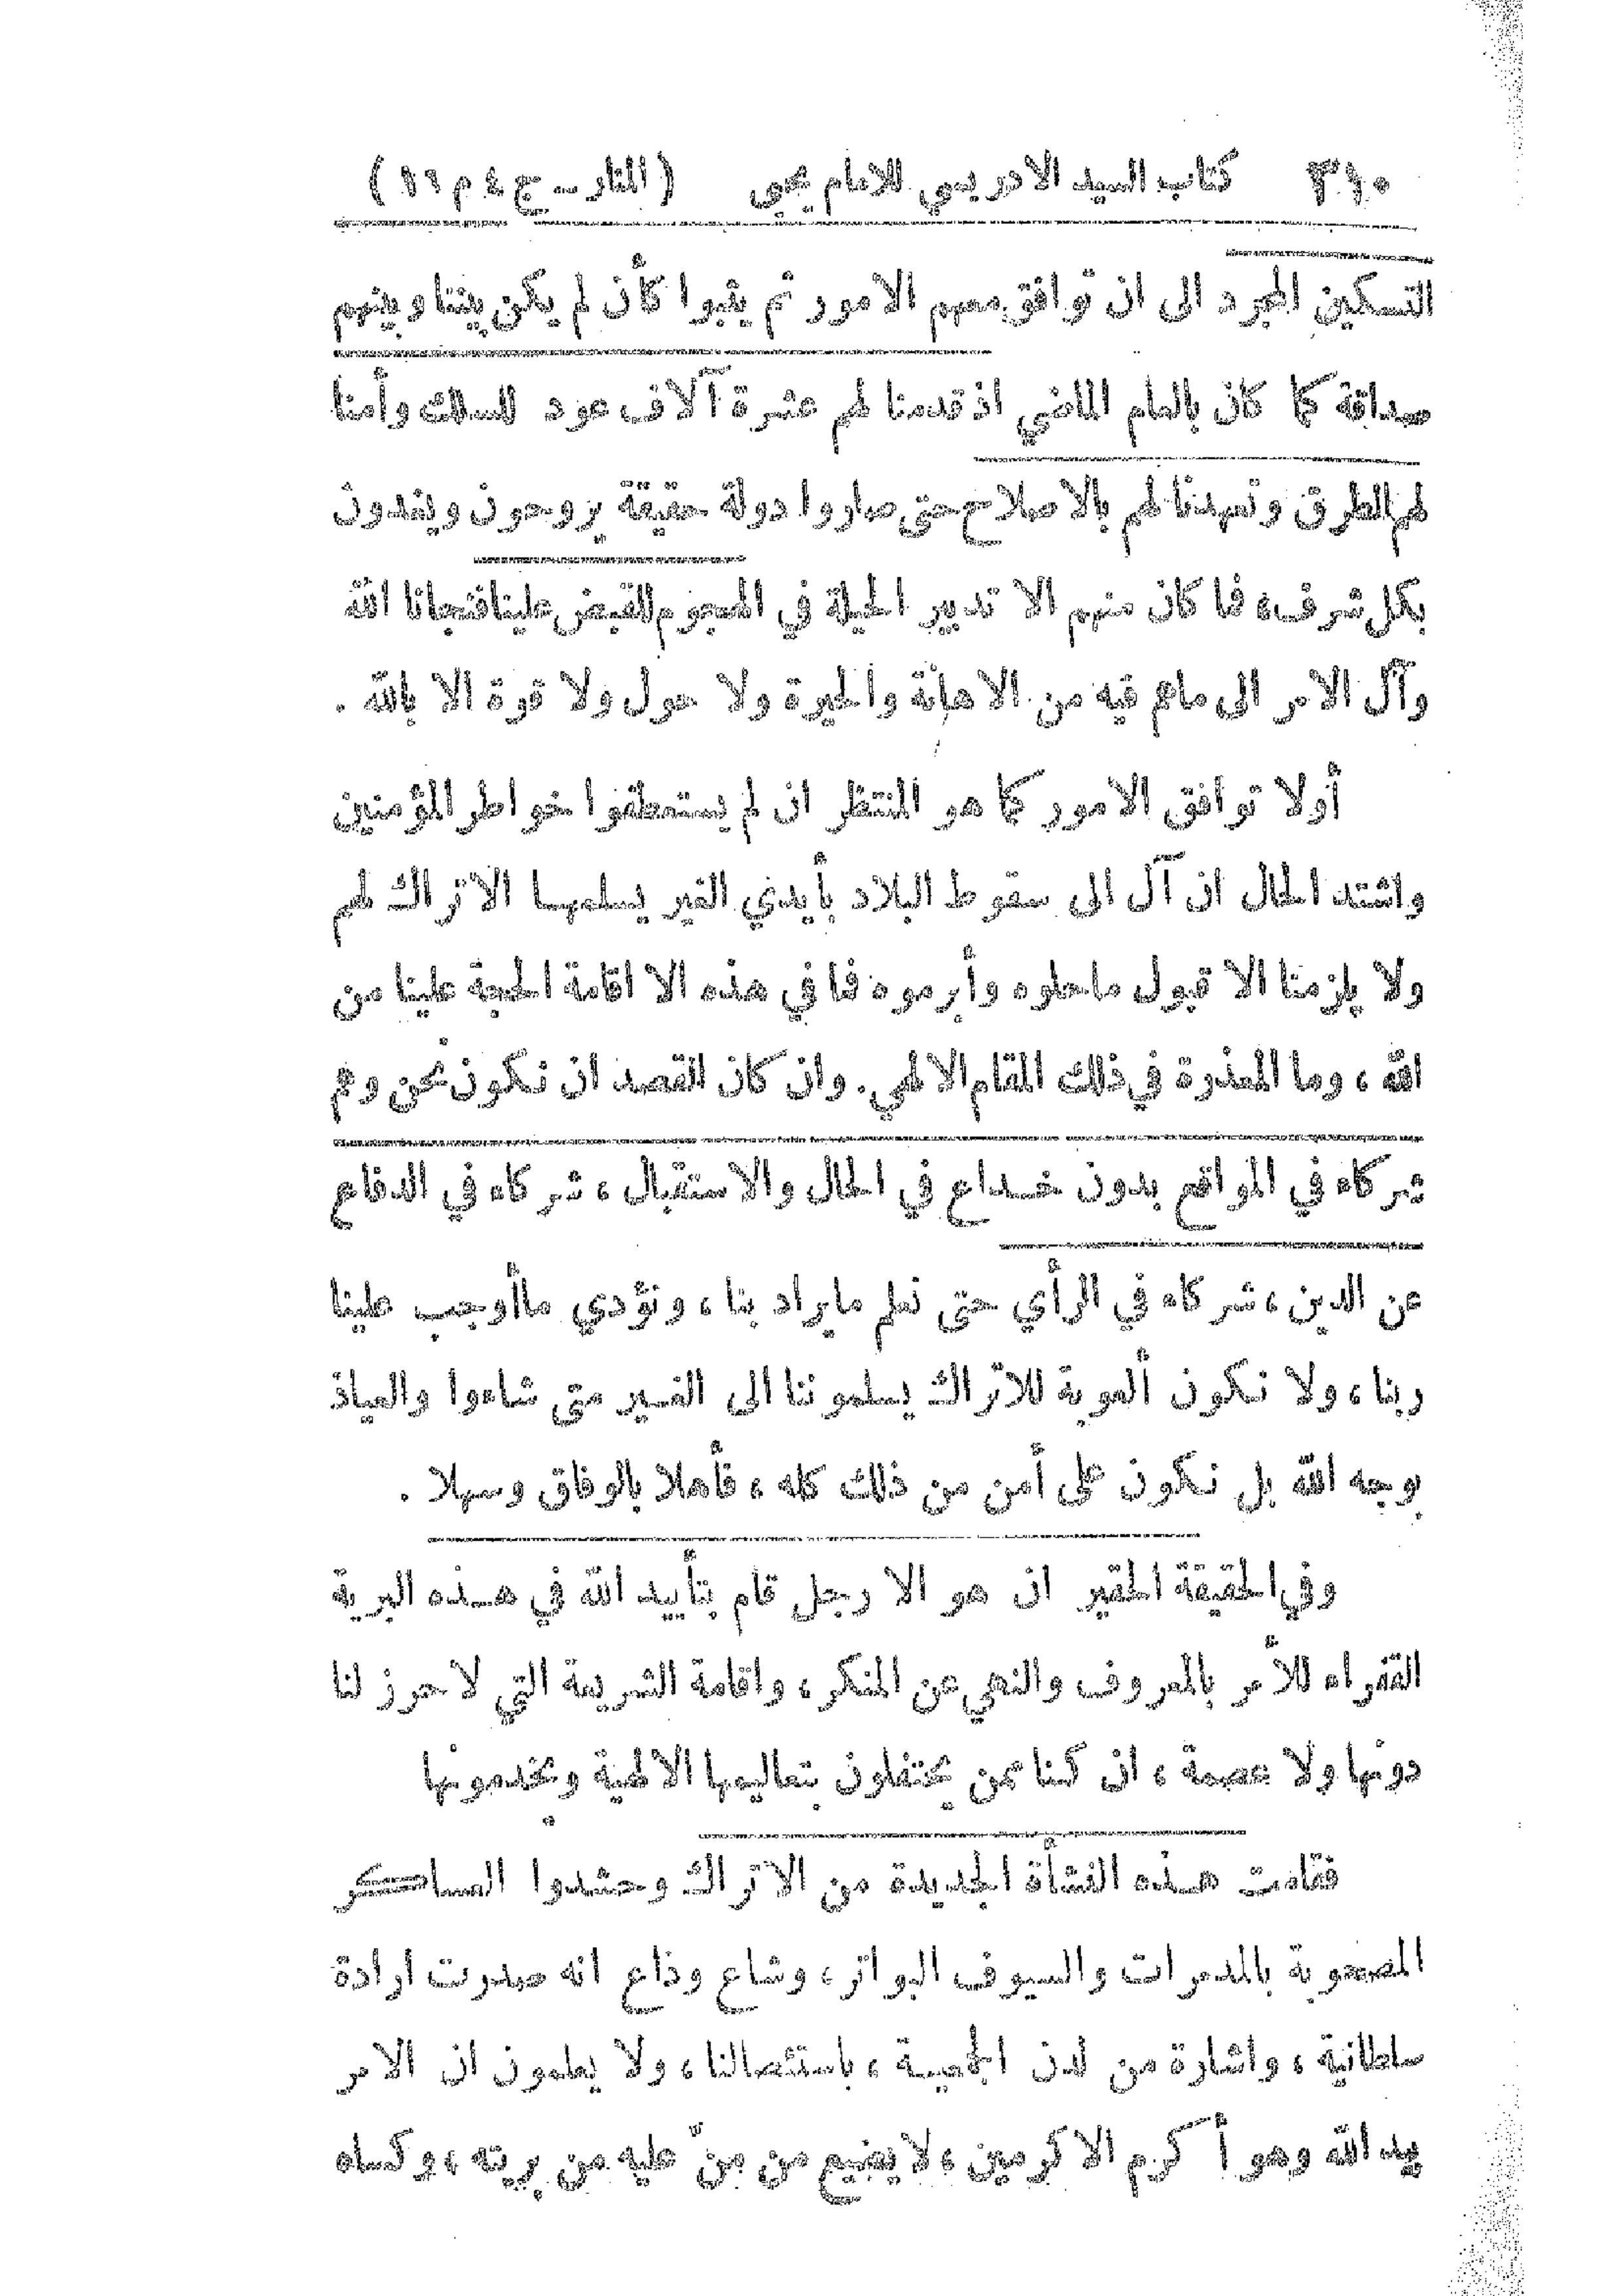 ٣١٠ كتاب السيد الادريسي للامام يحيى (المنار ـ ج ٤ م ١٦)
التسكين المجرد الى ان توافق معهم الامور ثم يثبوا كأن لم يكن بيننا وبينهم
صداقة كما كان بالعام الماضي اذ قدمنا لهم عشرة آلاف عود للسلك وأمنا
لهم الطرق وتعهدنا لهم بالاصلاح حتى صاروا دولة حقيقة يروحون ويغدون
بكل شرف، فما كان منهم الا تدبير الحيلة في الهجوم للقبض علينا فنجانا الله
وآل الامر الى ماهم فيه من الاهانة والحيرة ولا حول ولا قوة الا بالله .
أولا توافق الامور كما هو المنتظر ان لم يستعطفوا خواطر المؤمنين
واشتد الحال ان آل الى سقوط البلاد بأيدي الغير يسلمها الاتراك لهم
ولا يلزمنا الا قبول ماحلوه وأبرموه فما في هذه الا اقامة الحجة علينا من
الله ، وما المعذرة في ذلك المقام الالهي. وان كان القصد ان نكون نحن وهم
شركاء في المواقع بدون خداع في الحال والاستقبال ، شركاء في الدفاع
عن الدين ، شركاء في الرأي حتى نعلم مايراد بنا ، ونؤدي ماأوجب علينا
ربنا ، ولا نكون ألعوبة للاتراك يسلموننا الى الغير متى شاءوا والعياذ
بوجه الله بل نكون على أمن من ذلك كله ، فأهلا بالوفاق وسهلا .
وفي الحقيقة الحقير ان هو الا رجل قام بتأييد الله في هذه البرية
القفراء للأمر بالمعروف والنهي عن المنكر ، واقامة الشريعة التي لاحرز لنا
دونها ولا عصمة ، ان كنا ممن يحتفلون بتعاليمها الالهية ويخدمونها
فقامت هذه النشأة الجديدة من الاتراك وحشدوا العساكر
المصحوبة بالمدمرات والسيوف البواتر ، وشاع وذاع انه صدرت ارادة
سلطانية ، واشارة من لدن الجمعية ، باستئصالنا ، ولا يعلمون ان الامر
بيد الله وهو أكرم الاكرمين ، لايضيع من منّ عليه من بريته ، وكساه